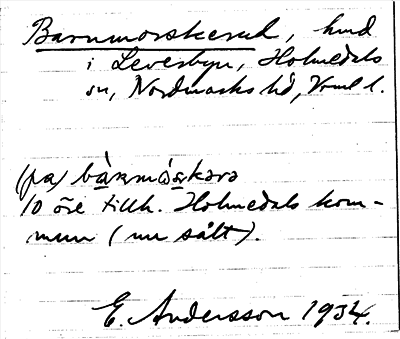 Barnmorskerud, hmd
i Leversbyn, Holmedals
sn, Nordmarks hd, Vrml l.
(pa) bàrnmòskərə
10 öre tillh. Holmedals kom-
mun (nu sålt).
E. Andersson 1934.